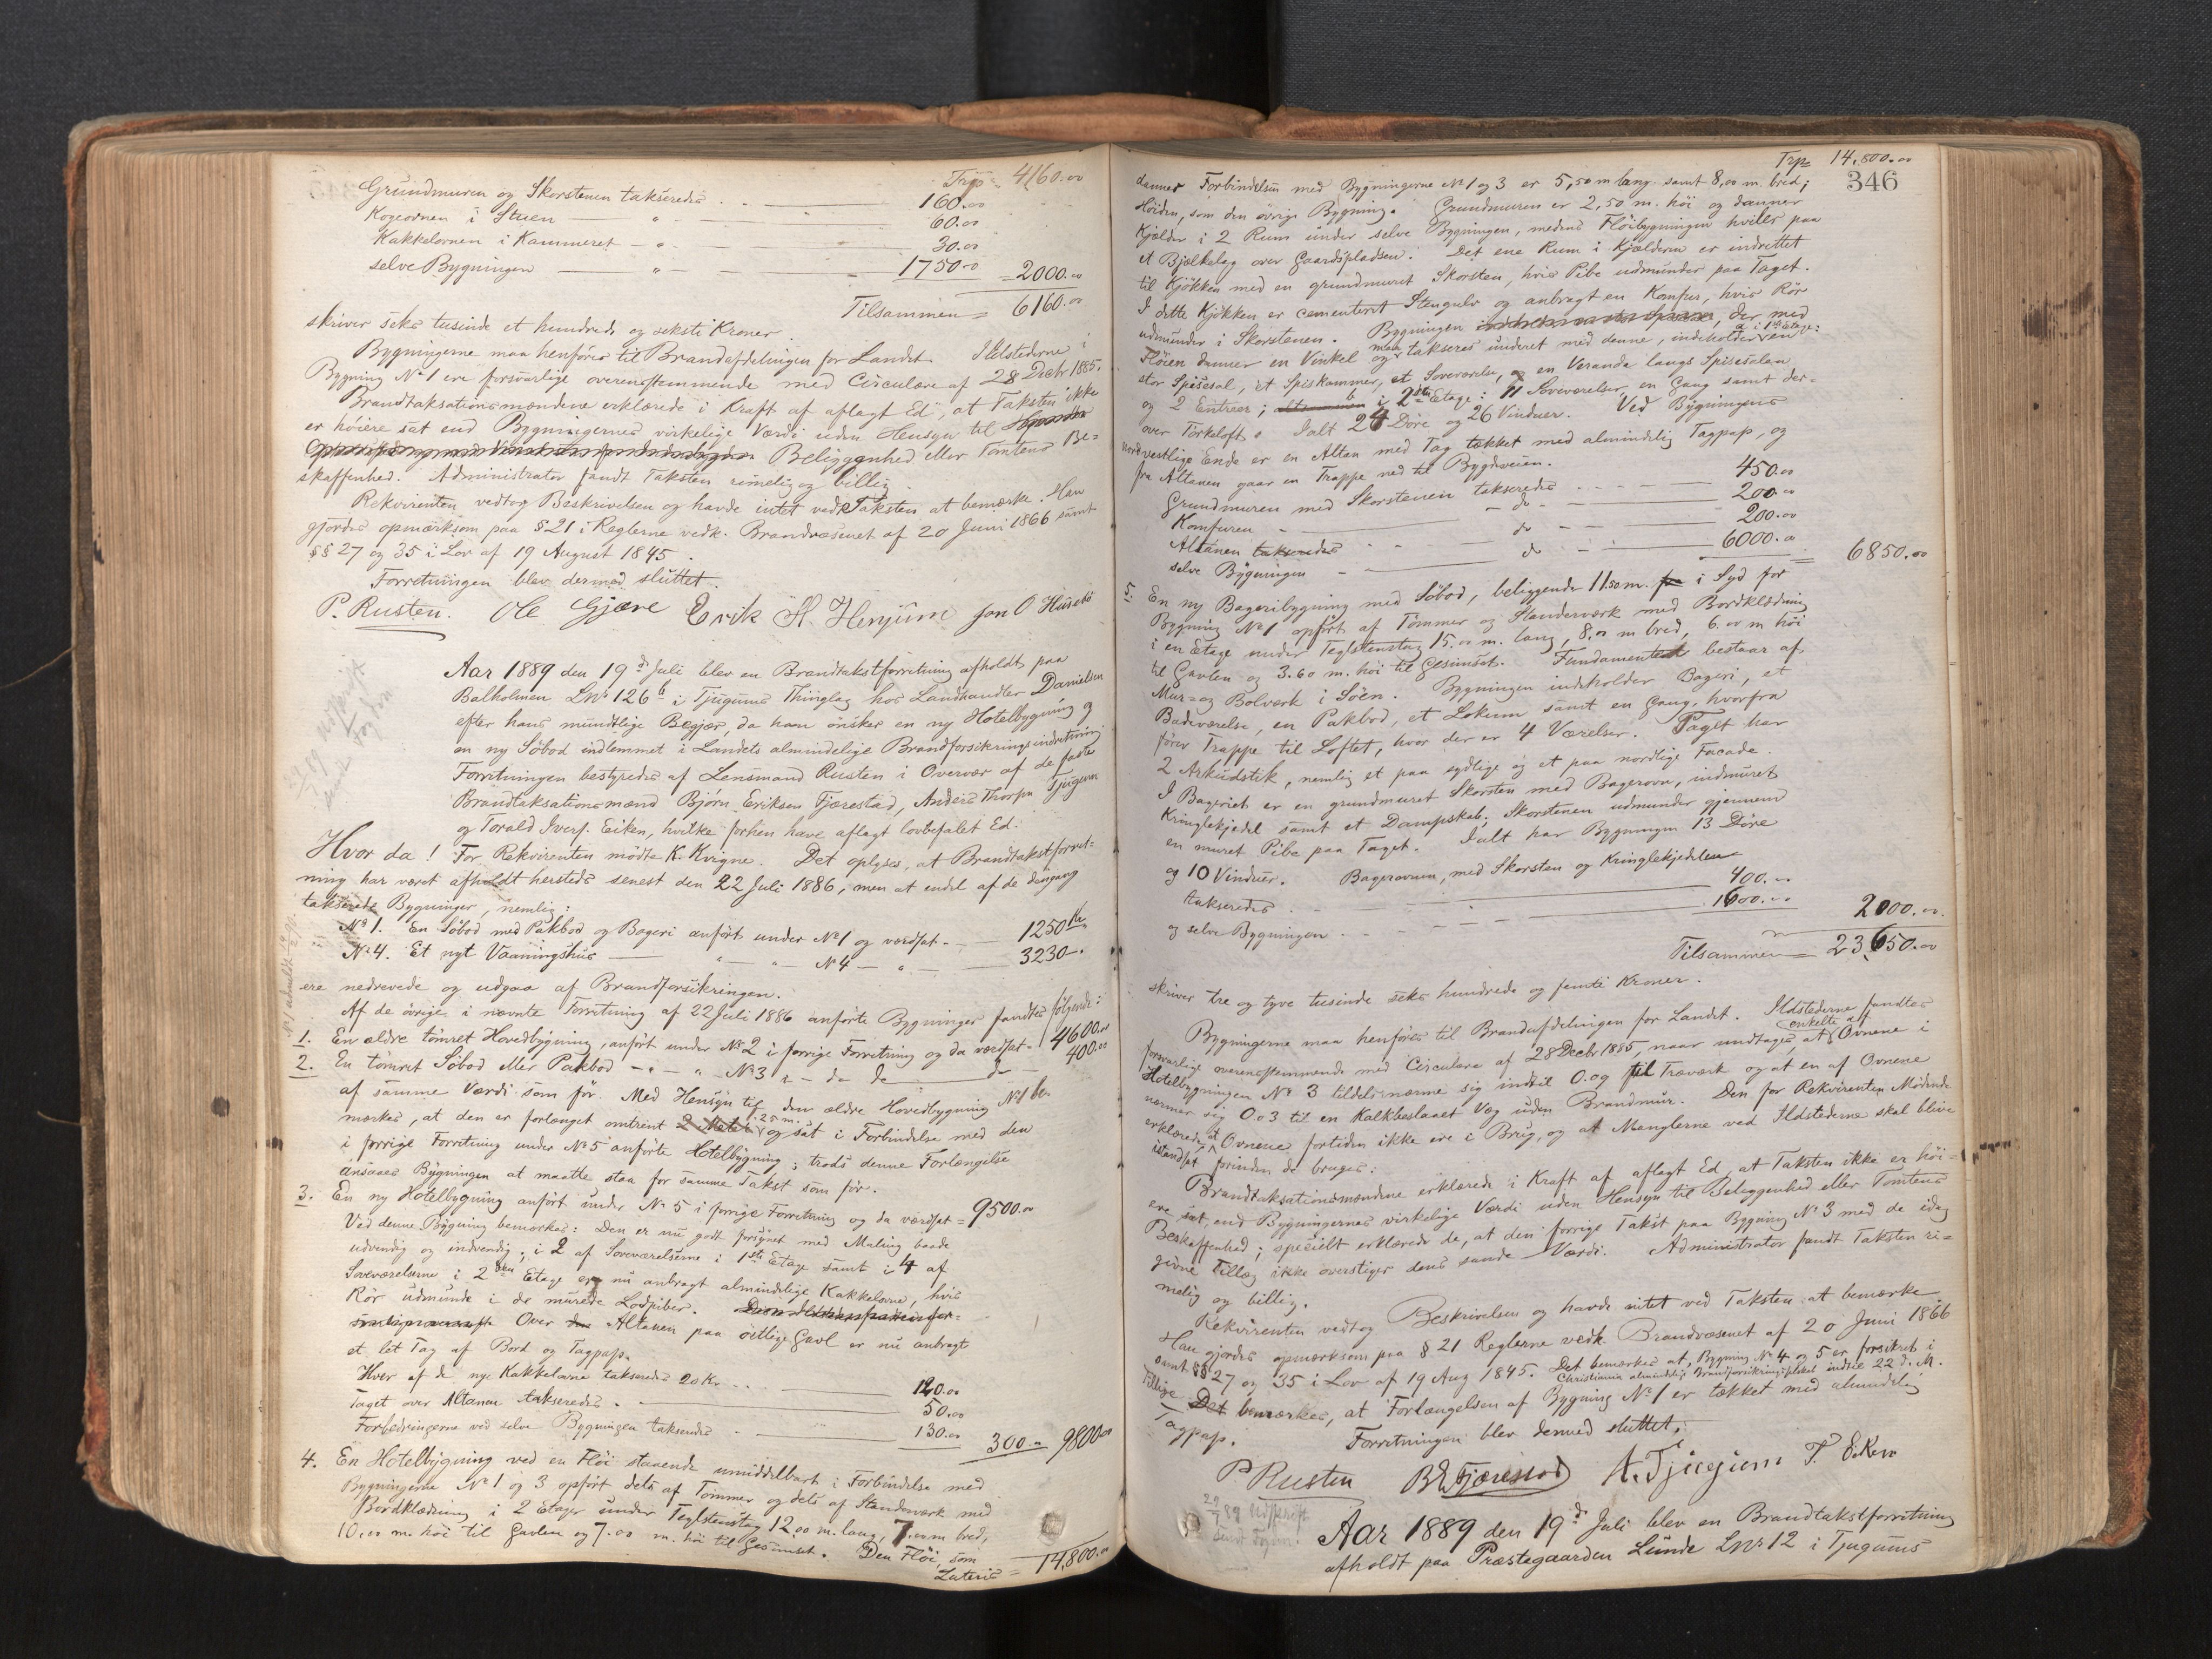 Trp = 4160.00
Grundmuren og Skorstenen takseredes . . — 160.00
Kogeovnen i Stuen — " — 60.00
Kakkelovnen i Kammeret — " — 30.00
selve Bygningen — " — 1750.00 = 2000.00
Tilsammen = 6160.00
skriver seks tusinde et hundrede og seksti Kroner
Bygningerne maa henføres til Brandafdelingen for Landet. Ildstederne i
Bygning No 1 ere forsvarlige overensstemmende med Circulære af 28 Decbr 1885.
Brandtaksationsmændene erklærede i Kraft af aflagt Ed, at Taksten ikke
er høiere sat end Bygningernes virkelige Værdi uden Hensyn til
Beliggenhed eller Tomtens Be=
skaffenhed. Administrator fandt Taksten rimelig og billig.
Rekvirenten vedtog Beskrivelsen og havde intet ved Taksten at bemærke. Han
gjordes opmærksom paa § 21 i Reglerne vedk. Brandvæsenet af 20 Juni 1866 samt
§§ 27 og 35 i Lov af 19 August 1845.
Forretningen blev dermed sluttet.
P. Rusten. Ole Gjære Erik H. Henjum Jon O Husebø
Aar 1889 den 19de Juli blev en Brandtakstforretning afholdt paa
Balholmen LNr 126b i Tjugums Thinglag hos Landhandler Danielsen
efter hans mundtlige Begjær, da han ønsker en ny Hotelbygning og
en ny Søbod indlemmet i Landets almindelige Brandforsikringsindretning
Forretningen bestyredes af Lensmand Rusten i Overvær af de faste
Brandtaksationsmænd Bjørn Eriksen Fjærestad, Anders Thorsen Tjugum
og ToraldIvers. Eiken, hvilke forhen have aflagt lovbefalet Ed.
Hvor da! For Rekvirenten mødte K. Kvigne. Det oplyses, at Brandtakstforret=
ning har været afholdt hersteds senest den 22 Juli 1886, men at endel af de dengang
takserede Bygninger, nemlig:
No 1. En Søbod med Pakbod og Bageri anført under No 1 og værdsat — 1250 Kr
No 4. Et nyt Vaaningshus — " — " — No 4 — " — 3230 —.
ere nedrevede og udgaa af Brandforsikringen.
Af de øvrige i nævnte Forretning af 22 Juli 1886 anførte Bygninger fandtes følgende:
1. En ældre tømret Hovedbygning, anført under No 2 i forrige Forretning og da værdsat = 4600.00
2. En tømret Søbod eller Pakbod — " — " — No 3 " — do do — do — 400.00
af samme Værdi som før. Med Hensyn til den ældre Hovedbygning No 1 be=
mærkes, at den er forlænget omtrent 1.25 m. og sat i Forbindelse med den
i forrige Forretning under No 5 anførte Hotelbygning; trods denne Forlængelse
ansaaes Bygningen at maatte staa for samme Takst som før.
3. En ny Hotelbygning anført under No 5 i forrige Forretning og da værdsat = 9500.00
Ved denne Bygning bemærkes: Den er nu godt forsynet med Maling baade
udvendig og indvendig; i 2 af Soveværelserne i 1ste Etage samt i 4 af
Soveværelserne i 2den Etage er nu anbragt almindelige Kakkelovne, hvis
Rør udmunde i de murede Lodpiber.
Over Altanen paa østlige Gavl er nu anbragt
et let Tag af Bord og Tagpap.
Hver af de nye Kakkelovne takseredes 20 Kr. . . — 120.00
Taget over Altanen takseredes . — 50.00
Forbedringerne ved selve Bygningen takseredes — 130.00 300.00 9800.00
4. En Hotelbygning ved en Fløi staaende umiddelbart i Forbindelse med
Bygningerne No 1 og 3 opført dels af Tømmer og dels af Standerværk med
Bordklædning i 2 Etager under Teglstenstag 12.00 m. lang, 7.00 m bred,
10.00 m. høi til Gavlen og 7.00 m. høi til Gesimset. Den Fløi, som
Lateris = 14,800.00
346
Trp 14,800.00
danner Forbindelsen med Bygningerne No 1 og 3 er 5,50 m lang samt 8,00 m. bred;
Høiden, som den øvrige Bygning. Grundmuren er 2,50 m. høi og danner
Kjælder i 2 Rum under selve Bygningen, medens Fløibygningen hviler paa
et Bjælkelag over Gaardspladsen. Det ene Rum i Kjælderen er indrettet
til Kjøkken med en grundmuret Skorsten, hvis Pibe udmunder paa Taget.
I dette Kjøkken er cementeret Stengulv og anbragt en Komfur, hvis Rør
udmunder i Skorstenen. Bygningen , der med
Fløien danner en Vinkel og maa takseres underet med denne, indeholder a i 1ste Etage: en
stor Spisesal, et Spiskammer, et Soveværelse, en Veranda langs Spisesalen
og 2 Entreer; b i 2den Etage: 11 Soveværelser, en Gang samt der=
over Tørkeloft. Ialt 24 Døre og 26 Vinduer. Ved Bygningens
nordvestlige Ende er en Altan med Tag tækket med almindelig Tagpap, og
fra Altanen gaar en Trappe ned til Bygdeveien.
Grundmuren med Skorstenen takseredes . . — 450.00
Komfuren — do — 200.00
Altanen — do — 200.00
selve Bygningen — do — 6000.00 = 6850.00
5. En ny Bageribygning med Søbod, beliggende 11.50 m. i Syd for
Bygning No 1 opført af Tømmer og Standerværk med Bordklædning
i en Etage under Teglstenstag 15.00 m. lang, 8,00 m bred, 6.00 m høi
til Gavlen og 3.60 m. høi til Gesimset. Fundamentet bestaar af
Mur= og Bolværk i Søen. Bygningen indeholder Bageri, et
Badeværelse, en Pakbod, et Lokum samt en Gang, hvorfra
fører Trappe til Loftet, hvor der er 4 Værelser. Taget har
2 Arkudstik, nemlig et paa sydlige og et paa nordlige Facade.
I Bageriet er en grundmuret Skorsten med Bagerovn, indmuret
Kringlekjedel samt et Dampskab. Skorstenen udmunder gjennem
en muret Pibe paa Taget. Ialt har Bygningen 13 Døre
og 10 Vinduer. Bagerovnen, med Skorsten og Kringlekjedelen
takseredes . — 400.00
og selve Bygningen . — 1600.00 2000.00
Tilsammen = 23,650.00
skriver tre og tyve tusinde seks hundrede og femti Kroner.
Bygningerne maa henføres til Brandafdelingen for Landet. Ildstederne fandtes
forsvarlige overensstemmende med Circulære af 28 Decbr 1885, naar undtages, at enkelte af Ovnene i
Hotelbygningen No 3 tildels nærme sig indtil 0.09 til Træværk og at en af Ovnene
nærmer sig 0.03 til en Kalkbeslaaet Væg uden Brandmur. Den for Rekvirenten Mødende
erklærede at Ovnene fortiden ikke ere i Brug, og at Manglerne ved Ildstederne skal blive
istandsat forinden de bruges.
Brandtaksationsmændene erklærede i Kraft af aflagt Ed, at Taksten ikke er høi=
ere sat, end Bygningernes virkelige Værdi uden Hensyn til Beliggenhed eller Tomtens
Beskaffenhed; specielt erklærede de, at den forrige Takst paa Bygning No 3 med de idag
givne Tillæg ikke overstiger dens sande Værdi. Administrator fandt Taksten ri=
melig og billig.
Rekvirenten vedtog Beskrivelsen og havde intet ved Taksten at bemærke.
Han gjordes opmærksom paa § 21 Reglerne vedk. Brandvæsenet af 20 Juni 1866
samt §§ 27 og 35 i Lov af 19 Aug 1845. Det bemærkes at, Bygning No 4 og 5 er forsikret i
Christiania almindelige Brandforsikringsselskab indtil 22 d. M.
Tillige bemærkes, at Forlængelsen af Bygning No 1 er tækket med almindelig
Tagpap.
Forretningen blev dermed sluttet.
P Rusten B E Fjærestad A. Tjugum T. Eiken
Aar 1889 den 19de Juli blev en Brandtakstforretning
afholdt paa Præstegaarden Lunde LNr 12 i Tjugums